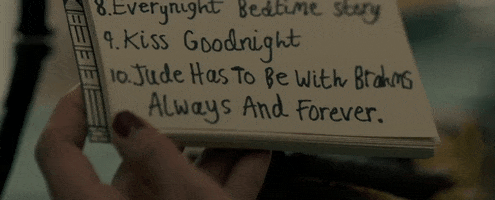 8.Everynight Bedtime story
9.Kiss Goodnight
10.Jude Has To Be With Brahms
Always And Forever.